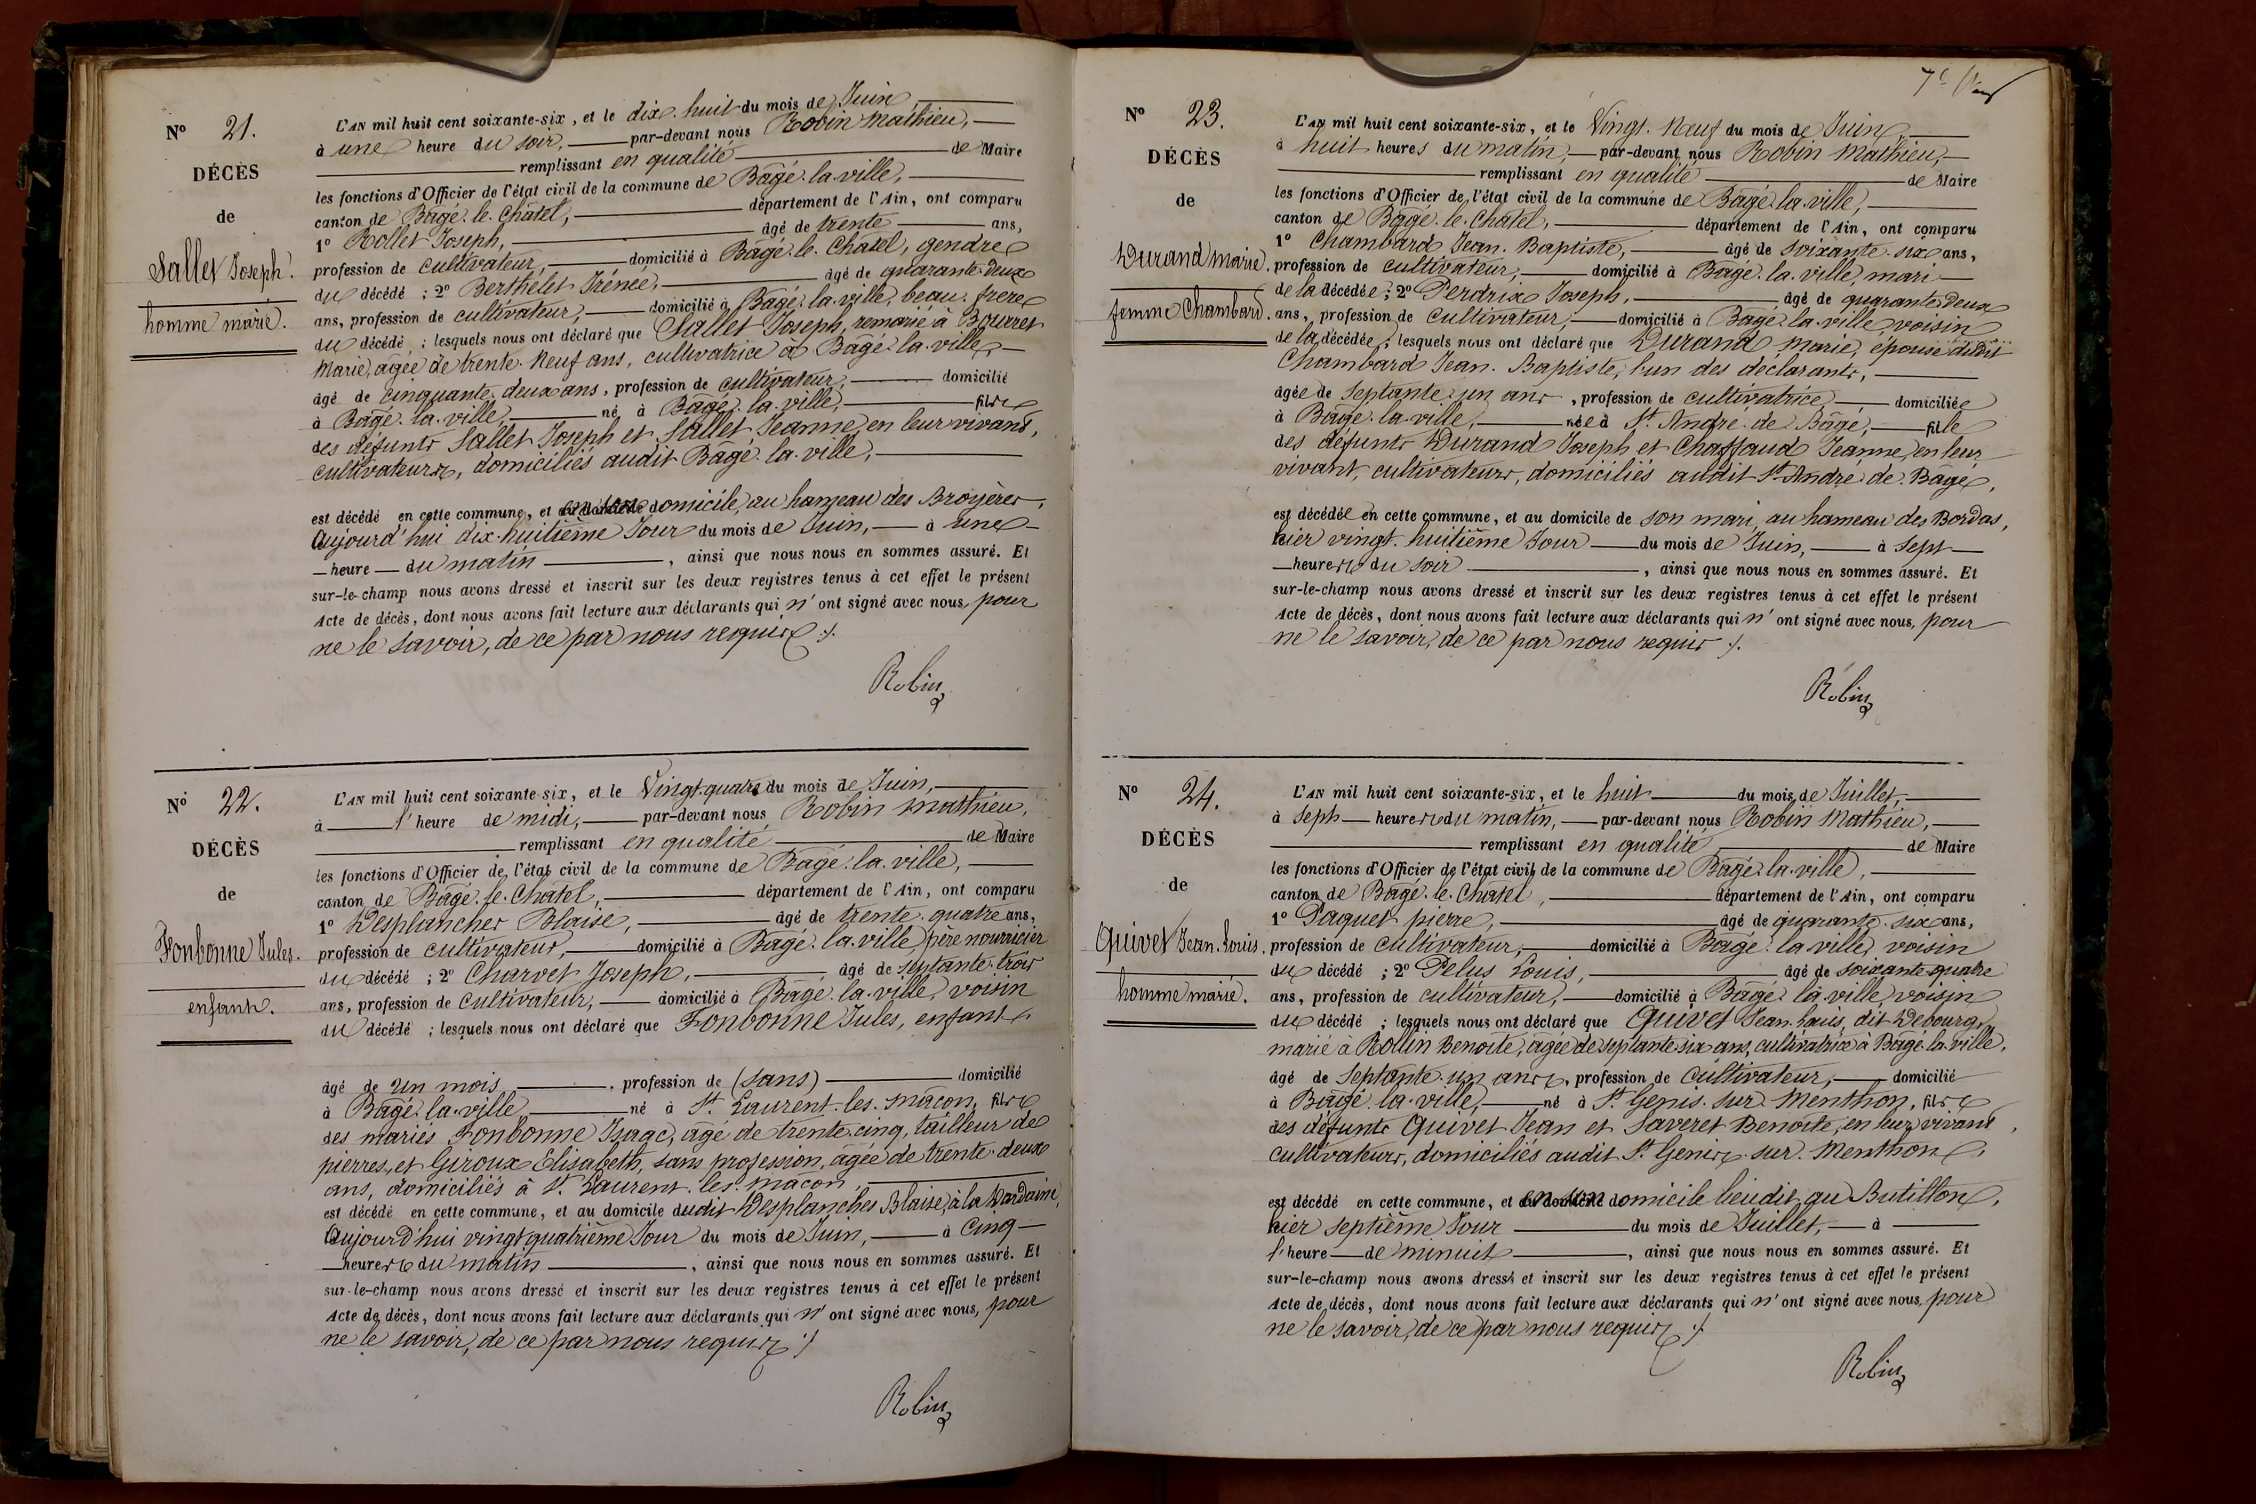 N° 21.
DÉCÈS
de
Sallet Joseph.
homme marié.
L'AN mil huit cent soixante-six, et le dix huit du mois de Juin,
à une heure du soir, par-devant nous Robin Mathieu,
remplissant en qualité de Maire
les fonctions d'Officier de l'état civil de la commune de Bâgé-la-ville,
canton de Bâgé-le-Châtel, département de l'Ain, ont comparu
1° Rollet Joseph, âgé de trente ans,
profession de cultivateur, domicilié à Bâgé-le-Chatel, gendre
du décédé ; 2° Berthelet Irénée, âgé de quarante-deux
ans, profession de cultivateur, domicilié à Bâgé-la-ville, beau-frère
du décédé ; lesquels nous ont déclaré que Sallet Joseph, remarié à Bourret
Marie, âgée de trente-neuf ans, cultivatrice à Bâgé-la-ville,
âgé de cinquante-deux ans, profession de cultivateur, domicilié
à Bâgé-la-ville, né à Bâgé-la-ville, fils
des défunts Sallet Joseph et Sallet Jeanne, en leur vivant,
cultivateurs, domiciliés audit Bâgé-la-ville,
est décédé en cette commune, et en son domicile, au hameau des Broyères,
Aujourd'hui dix-huitième Jour du mois de Juin, à une
heure du matin, ainsi que nous nous en sommes assuré. Et
sur-le-champ nous avons dressé et inscrit sur les deux registres tenus à cet effet le présent
Acte de décès, dont nous avons fait lecture aux déclarants qui n'ont signé avec nous, pour
ne le savoir, de ce par nous requis ./.
Robin
N° 22.
DÉCÈS
de
Fonbonne Jules.
enfant.
L'AN mil huit cent soixante-six, et le Vingt-quatre du mois de Juin,
à l'heure de midi, par-devant nous Robin Mathieu,
remplissant en qualité de Maire
les fonctions d'Officier de l'état civil de la commune de Bâgé-la-ville,
canton de Bâgé-le-Châtel, département de l'Ain, ont comparu
1° Desplanches Blaise, âgé de trente-quatre ans,
profession de cultivateur, domicilié à Bâgé-la-ville, père nourricier
du décédé ; 2° Charvet Joseph, âgé de septante-trois
ans, profession de cultivateur, domicilié à Bâgé-la-ville, voisin
du décédé ; lesquels nous ont déclaré que Fonbonne Jules, enfant,
âgé de un mois, profession de (sans) domicilié
à Bâgé-la-ville, né à St Laurent-les-Mâcon, fils
des mariés Fonbonne Isaac, âgé de trente-cinq, tailleur de
pierres, et Giroux Elisabeth, sans profession, âgée de trente-deux
ans, domiciliés à St Laurent-les-Macon,
est décédé en cette commune, et au domicile dudit Desplanches Blaise, à la Dardaine,
Aujourd'hui vingt-quatrième Jour du mois de Juin, à cinq
heures du matin, ainsi que nous nous en sommes assuré. Et
sur-le-champ nous avons dressé et inscrit sur les deux registres tenus à cet effet le présent
Acte de décès, dont nous avons fait lecture aux déclarants qui n'ont signé avec nous, pour
ne le savoir, de ce par nous requis ./.
Robin
N° 23.
DÉCÈS
de
Durand Marie.
femme Chambard.
L'AN mil huit cent soixante-six, et le Vingt-Neuf du mois de Juin,
à huit heures du matin, par-devant nous Robin Mathieu,
remplissant en qualité de Maire
les fonctions d'Officier de l'état civil de la commune de Bâgé-la-ville,
canton de Bâgé-le-Châtel, département de l'Ain, ont comparu
1° Chambard Jean-Baptiste, âgé de soixante-six ans,
profession de cultivateur, domicilié à Bâgé-la-ville, mari
de la décédée ; 2° Perdrix Joseph, âgé de quarante-deux
ans, profession de cultivateur, domicilié à Bâgé-la-ville, voisin
de la décédée ; lesquels nous ont déclaré que Durand Marie, épouse dudit
Chambard Jean-Baptiste, l'un des déclarants,
âgée de septante-un ans, profession de cultivatrice, domiciliée
à Bâgé-la-ville, née à St André-de-Bâgé, fille
des défunts Durand Joseph et Chaffaud Jeanne, en leur
vivant, cultivateurs, domiciliés audit St André-de-Bâgé,
est décédée en cette commune, et au domicile de son mari, au hameau des Bordas,
hier vingt-huitième Jour du mois de Juin, à sept
heures du soir, ainsi que nous nous en sommes assuré. Et
sur-le-champ nous avons dressé et inscrit sur les deux registres tenus à cet effet le présent
Acte de décès, dont nous avons fait lecture aux déclarants qui n'ont signé avec nous, pour
ne le savoir, de ce par nous requis ./.
Robin
N° 24.
DÉCÈS
de
Quivet Jean-Louis.
homme marié.
L'AN mil huit cent soixante-six, et le huit du mois de Juillet,
à Seph heures du matin, par-devant nous Robin Mathieu,
remplissant en qualité de Maire
les fonctions d'Officier de l'état civil de la commune de Bâgé-la-ville,
canton de Bâgé-le-Chatel, département de l'Ain, ont comparu
1° Paquet pierre, âgé de quarante-six ans,
profession de cultivateur, domicilié à Bâgé-la-ville, voisin
du décédé ; 2° Pelus Louis, âgé de soixante-quatre
ans, profession de cultivateur, domicilié à Bâgé-la-ville, voisin
du décédé ; lesquels nous ont déclaré que Quivet Jean-Louis, dit Debourg,
marié à Rollin Benoite, âgée de septante-six ans, cultivatrice à Bâgé-la-ville,
âgé de Septante-un ans, profession de cultivateur, domicilié
à Bâgé-la-ville, né à St Genis-sur-Menthon, fils
des défunts Quivet Jean et Saveret Benoite, en leur vivant,
cultivateurs, domiciliés audit St Genis-sur-Menthon,
est décédé en cette commune, et en son domicile lieudit au Butillon,
hier septième Jour du mois de Juillet, à
l'heure de minuit, ainsi que nous nous en sommes assuré. Et
sur-le-champ nous avons dressé et inscrit sur les deux registres tenus à cet effet le présent
Acte de décès, dont nous avons fait lecture aux déclarants qui n'ont signé avec nous, pour
ne le savoir, de ce par nous requis ./.
Robin